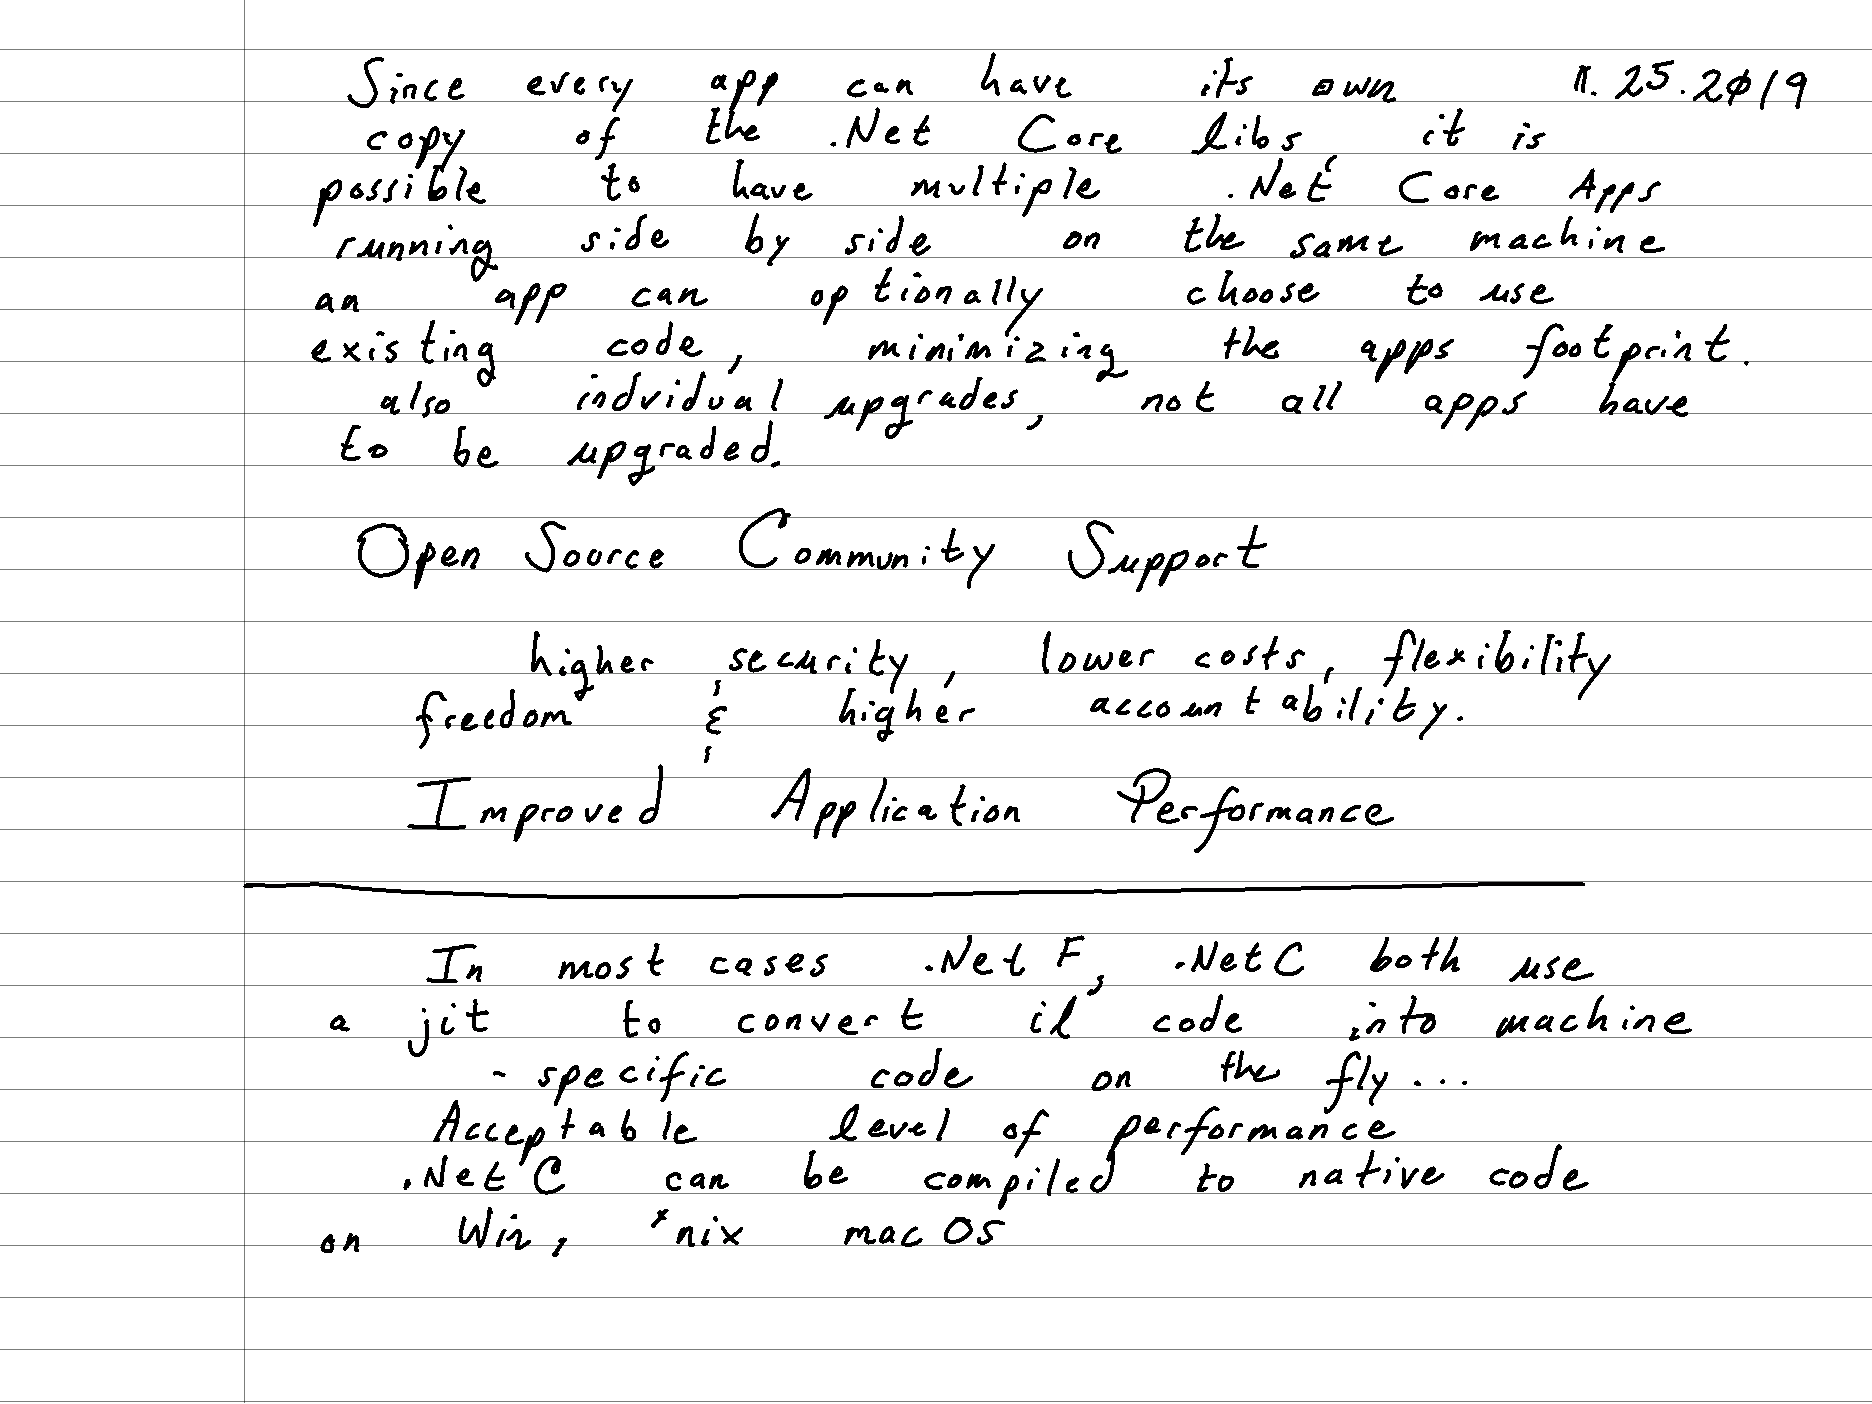 Since every app can have its own 11.25.2019
copy of the .Net Core libs, it is
possible to have multiple .Net Core Apps
running side by side on the same machine
an app can optionally choose to use
existing code, minimizing the apps footprint.
also indvidual upgrades, not all apps have
to be upgraded.
Open Source Community Support
higher security, lower costs, flexibility
freedom & higher accountability.
Improved Application Performance
In most cases .Net F, .Net C both use
a jit to convert il code into machine
- specific code on the fly...
Acceptable level of performance
.Net C can be compiled to native code
on Win, *nix mac OS